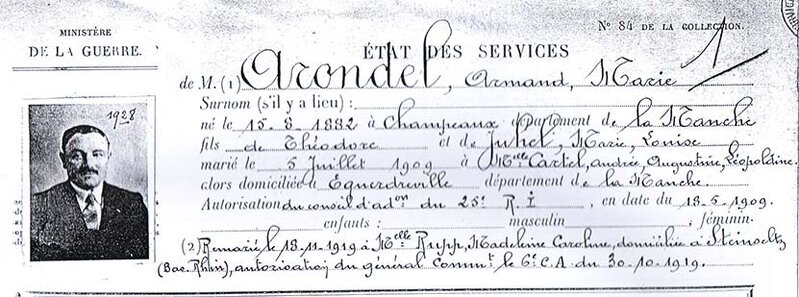 MINISTÈRE
DE LA GUERRE.
N° 84 DE LA COLLECTION.
1
ÉTAT DES SERVICES
de M. (1) Arondel, Armand, Marie
Surnom (s'il y a lieu) :
né le 15-8-1882 à Champeaux département de la Manche
fils de Théodore et de Juhel, Marie, Louise
marié le 5 Juillet 1909 à Melle Cartel, Andrée, Augustine, Léopoldine.
alors domiciliée à Equerdreville département de la Manche.
Autorisation du conseil d'adon du 25e R.I , en date du 18-5-1909.
enfants : masculin , féminin.
(2) Remarié le 18-11-1919 à Melle Rupp, Madeleine Caroline, domiciliée à Steinseltz
(Bas-Rhin), autorisation du général Commt le 6e C.A du 30-10-1919.
1928